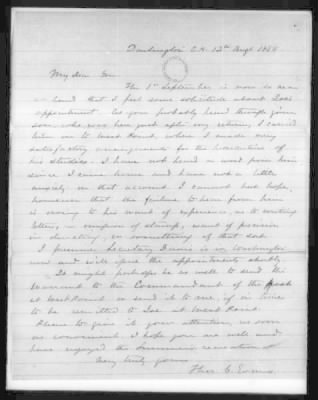 Darlington C.H. 12th Augt 1854
My dear Son
The 1st September is now so near
at hand that I feel some solicitude about
appointment. As you probably heard through your
son who was here just after my return, I carried
him on to West Point, where I made very
satisfactory arrangements for the prosecution of
his studies. I have not heard a word from him
since I came home and have not a little
anxiety on that account. I cannot but hope,
however that the failure to hear from him
is owing to his want of experience, as to writing
letters, — omission of stamp, want of precision
in directing, or something of that sort.
I presume Secretary is in Washington
now and will open the appointments shortly.
It might perhaps be as well to send the
warrant to the Commandant of the
at West Point or send it to me, if in time
to be remitted to at West Point.
Please to give it your attention, as soon
as convenient. I hope you are well and
have enjoyed the summer's recreation.
Very truly yours
Thos. C. Evans.